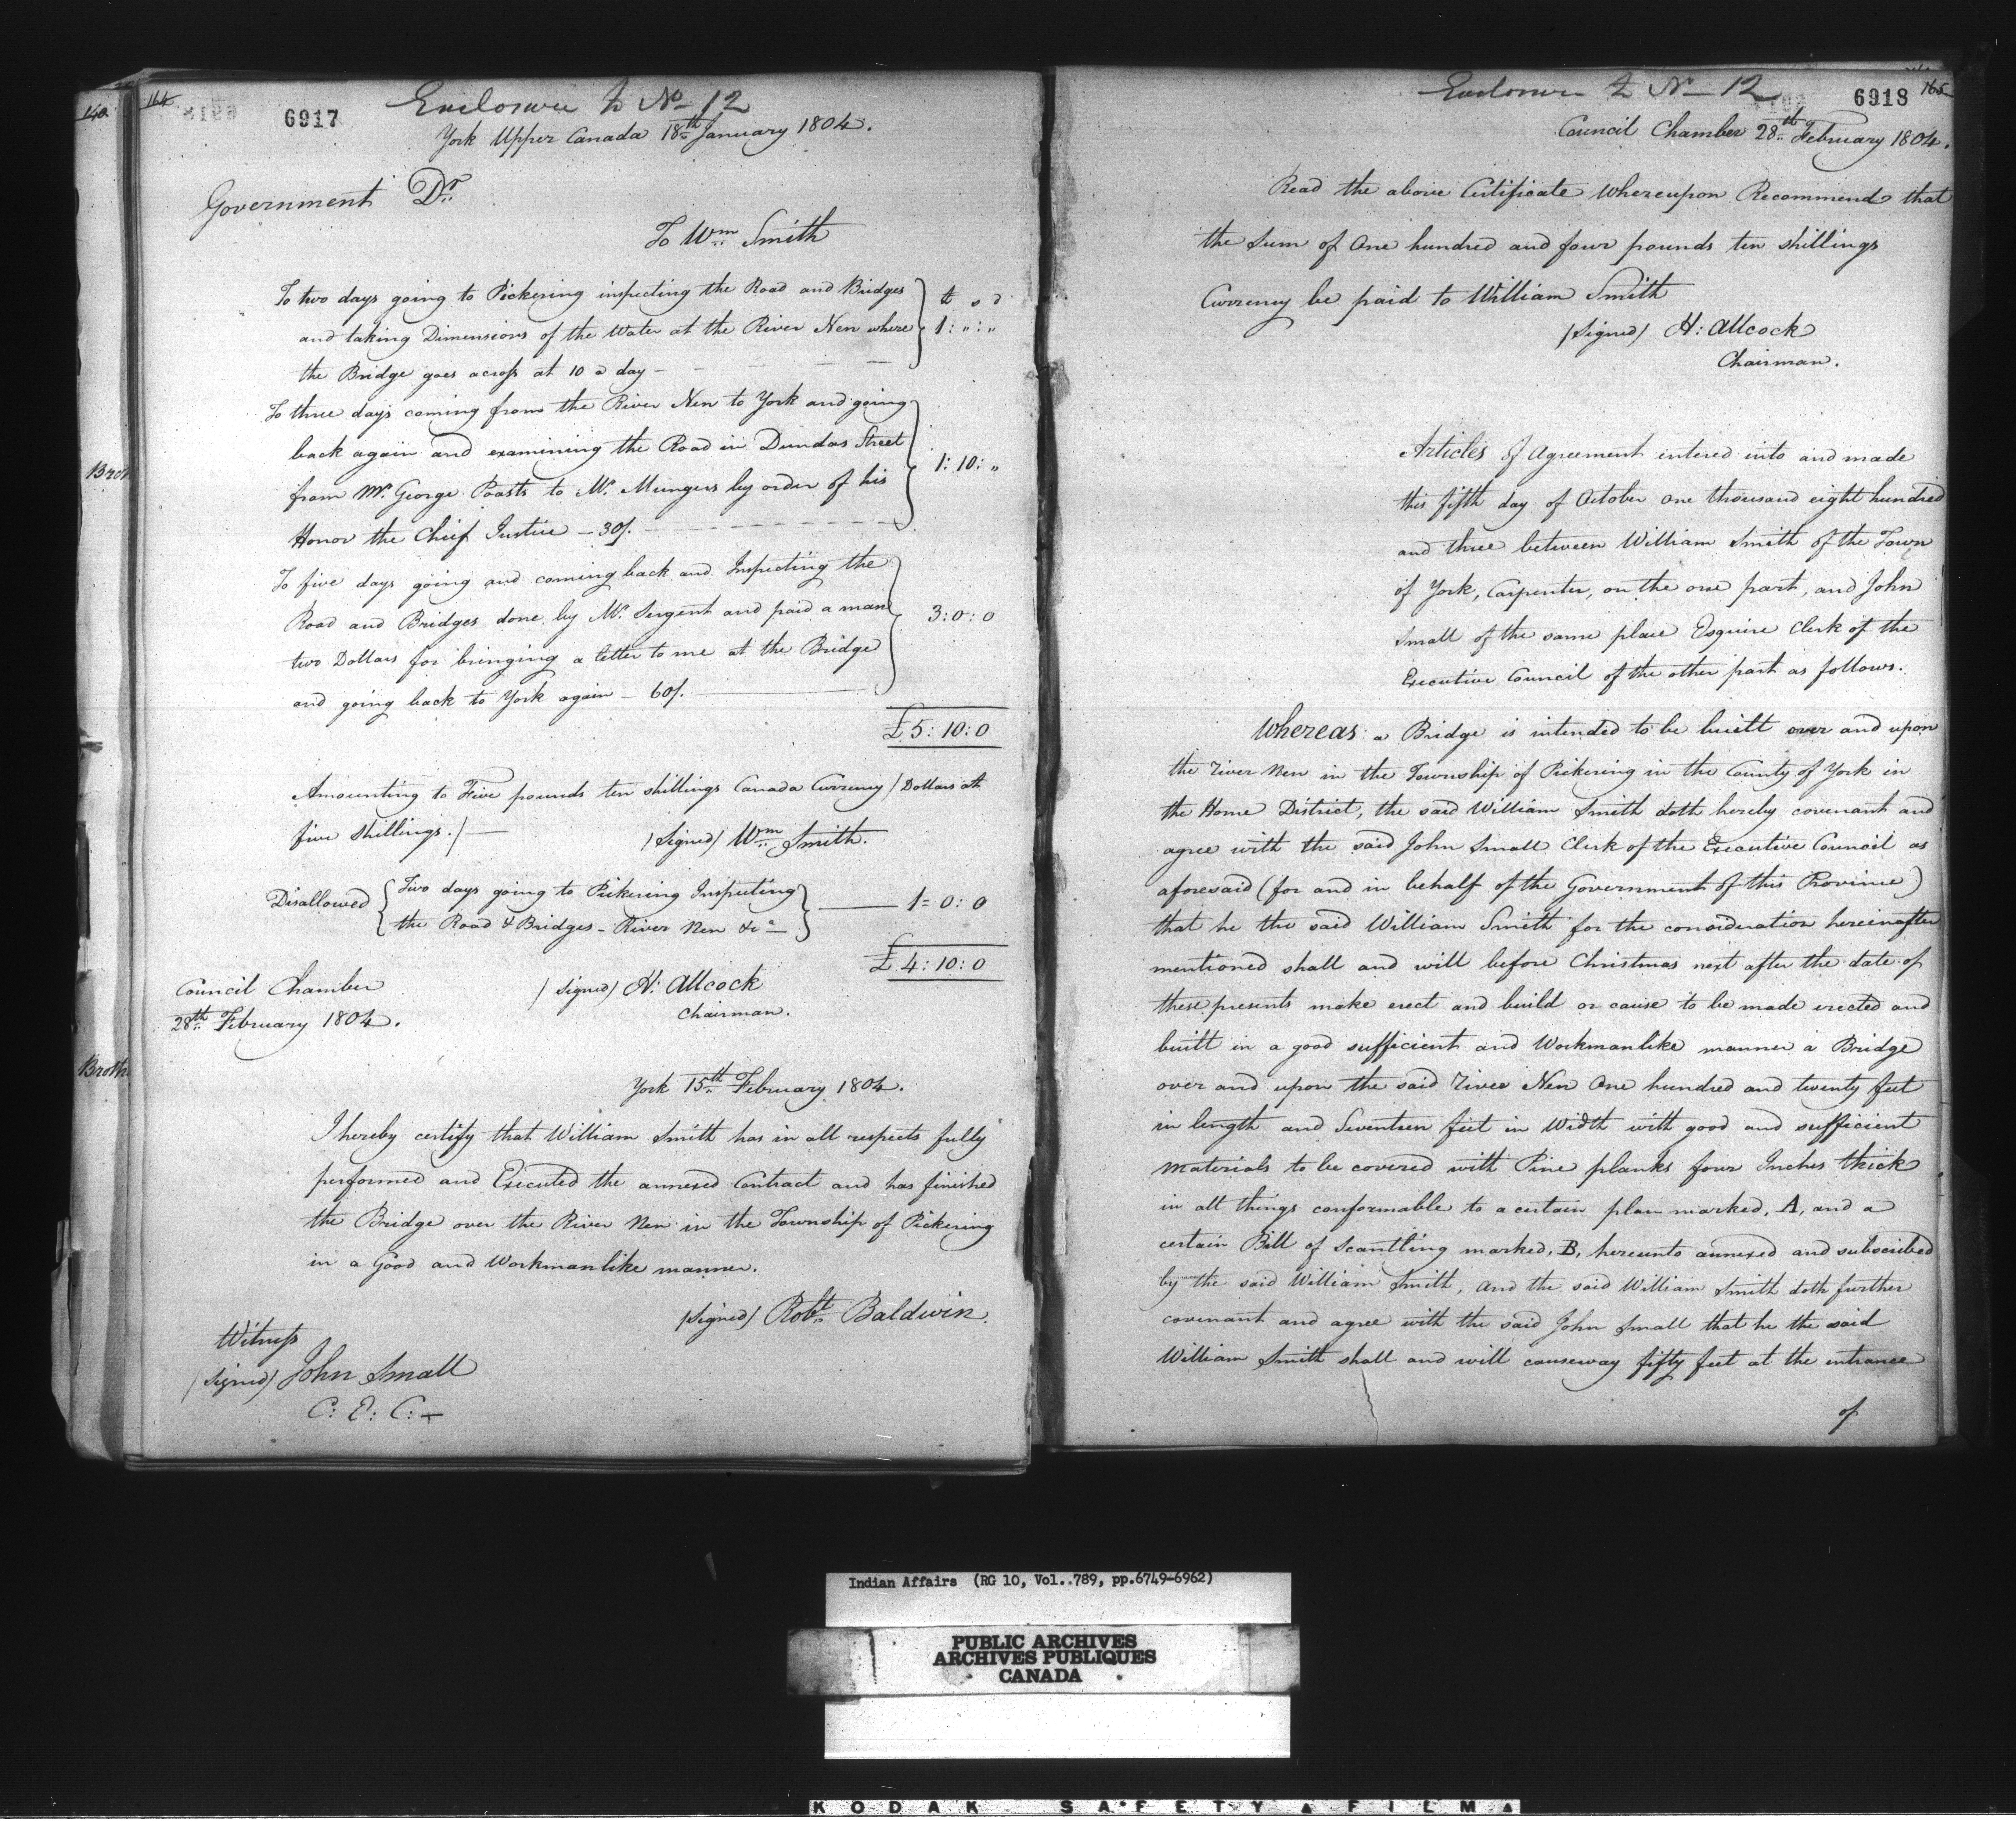 140
164
6917
Enclosure to No 12
York Upper Canada 18th January 1804.
Government Dr
To Wm Smith
To two days going to Pickering inspecting the Road and Bridges
and taking Dimensions of the Water at the River Nen where
the Bridge goes across at 10 a day —
£ s d
1: " : "
To three days coming from the River Nen to York and going
back again and examining the Road in Dundas Street
from Mr George Poasts to Mr Mungers by order of his
Honor the Chief Justice — 30/.
1: 10: "
To five days going and coming back and Inspecting the
Road and Bridges done by Mr Sergent and paid a man
two Dollars for bringing a letter to me at the Bridge
and going back to York again — 60/.
3:0:0
£5:10:0
Amounting to Five pounds ten shillings Canada Currency / Dollars at
five shillings./—
/Signed/ Wm Smith.
Disallowed { Two days going to Pickering Inspecting
the Road & Bridges - River Nen &ca } — 1=0:0
£4:10:0
Council Chamber
28th February 1804.
/signed/ H: Allcock
Chairman.
York 15th February 1804.
I hereby certify that William Smith has in all respects fully
performed and Executed the annexed Contract and has finished
the Bridge over the River Nen in the Township of Pickering
in a Good and Workmanlike manner.
/Signed/ Robt Baldwin.
Witness
/Signed/ John Small
C: E: C: —
Brot
Broth
Enclosure to No 12
6918
165
Council Chamber 28th February 1804.
Read the above Certificate Whereupon Recommend that
the Sum of One hundred and four pounds ten shillings
Currency be paid to William Smith
/Signed/ H: Allcock
Chairman.
Articles of Agreement entered into and made
this fifth day of October One thousand eight hundred
and three between William Smith of the Town
of York, Carpenter, on the one part, and John
Small of the same place Esquire Clerk of the
Executive Council of the other part as follows.
Whereas a Bridge is intended to be built over and upon
the River Nen in the Township of Pickering in the County of York in
the Home District, the said William Smith doth hereby covenant and
agree with the said John Small Clerk of the Executive Council as
aforesaid (for and in behalf of the Government of this Province)
that he the said William Smith for the consideration hereinafter
mentioned shall and will before Christmas next after the date of
these presents make erect and build or cause to be made erected and
built in a good sufficient and Workmanlike manner a Bridge
over and upon the said River Nen One hundred and twenty feet
in length and Seventeen feet in Width with good and sufficient
materials to be covered with Pine planks four Inches thick
in all things conformable to a certain plan marked, A, and a
certain Bill of Scantling marked, B, hereunto annexed and subscribed
by the said William Smith, and the said William Smith doth further
covenant and agree with the said John Small that he the said
William Smith shall and will causeway fifty feet at the entrance
of
Indian Affairs (RG 10, Vol..789, pp.6749-6962)
PUBLIC ARCHIVES
ARCHIVES PUBLIQUES
CANADA
KODAK SAFETY FILM